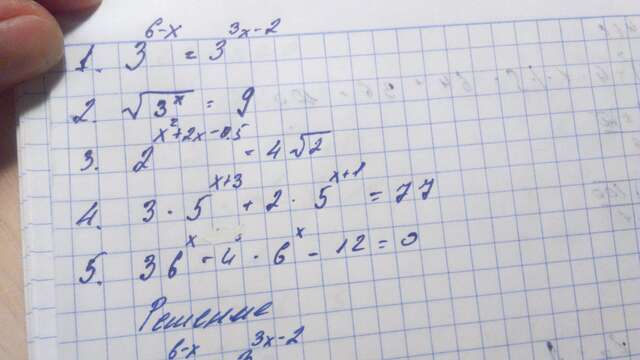 1. 3^{6-x} = 3^{3x-2}
2. √(3^x) = 9
3. 2^{x²+2x-0.5} = 4√2
4. 3 · 5^{x+3} + 2 · 5^{x+1} = 77
5. 36^x - 4 · 6^x - 12 = 0
Решение
6-x 3x-2